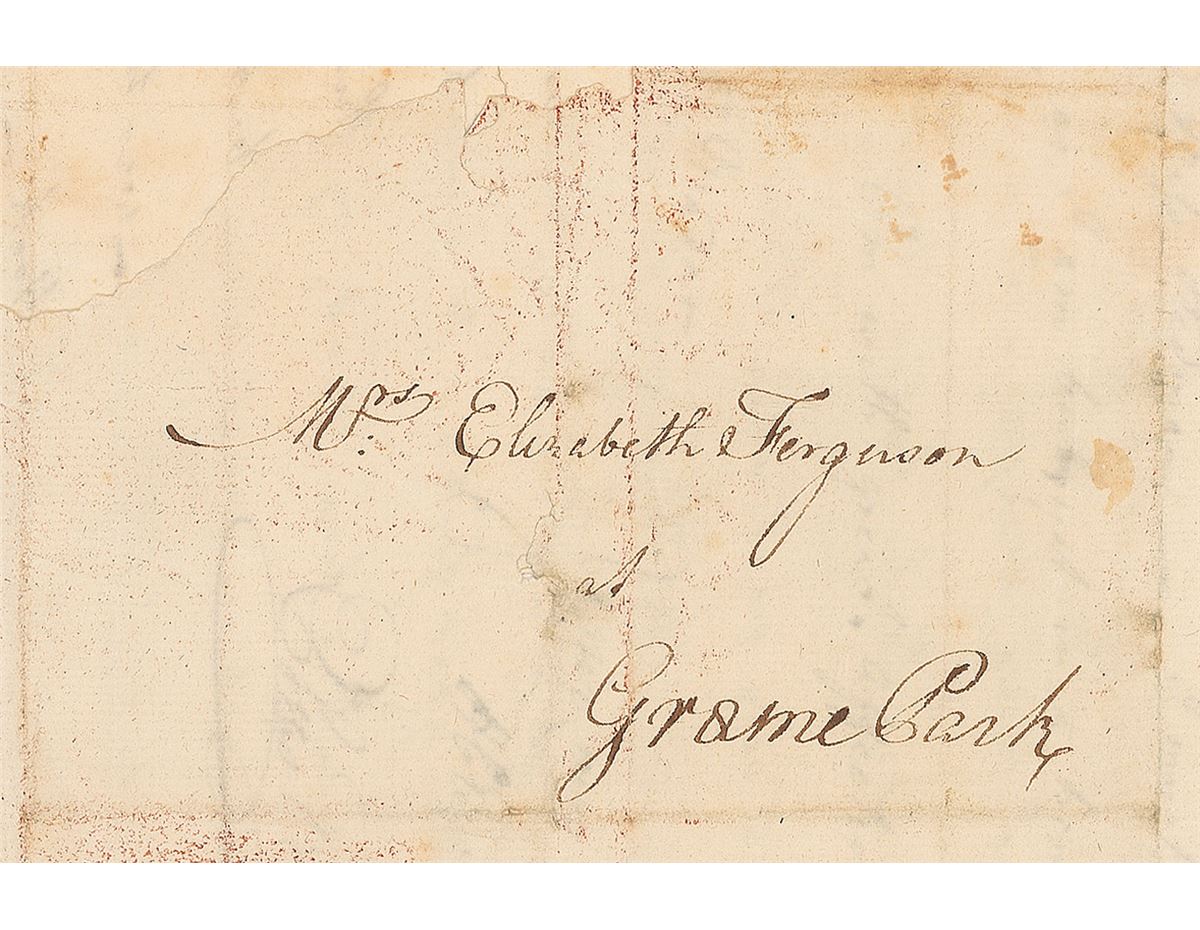 Mrs. Elizabeth Ferguson
at
Græme Park